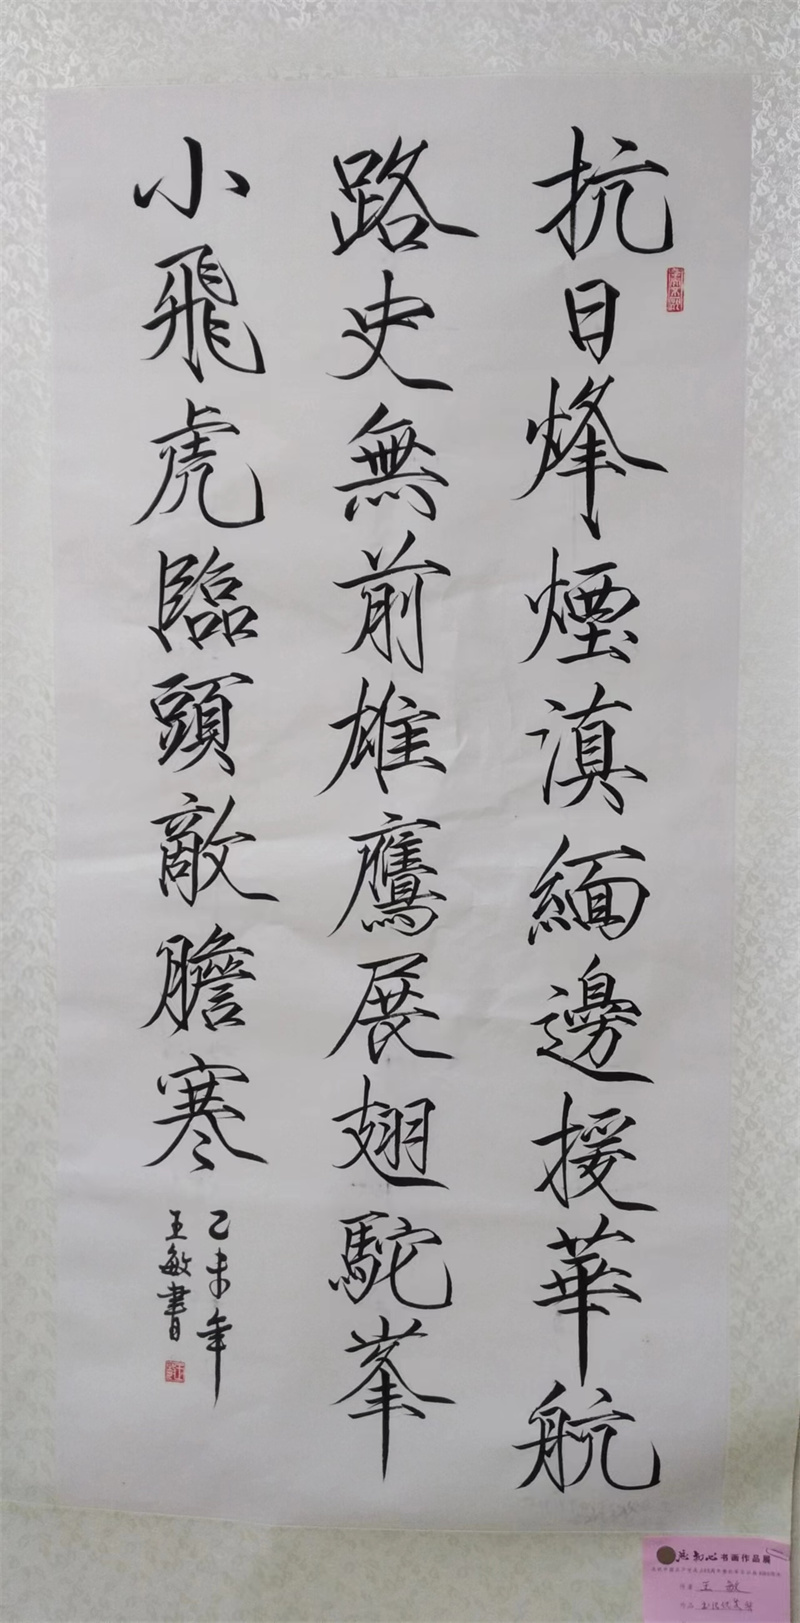 抗日烽煙滇緬邊援華航
路史無前雄鷹展翅駝峯
小飛虎臨頭敵膽寒
乙未年
王敏書
书画作品展
王敏